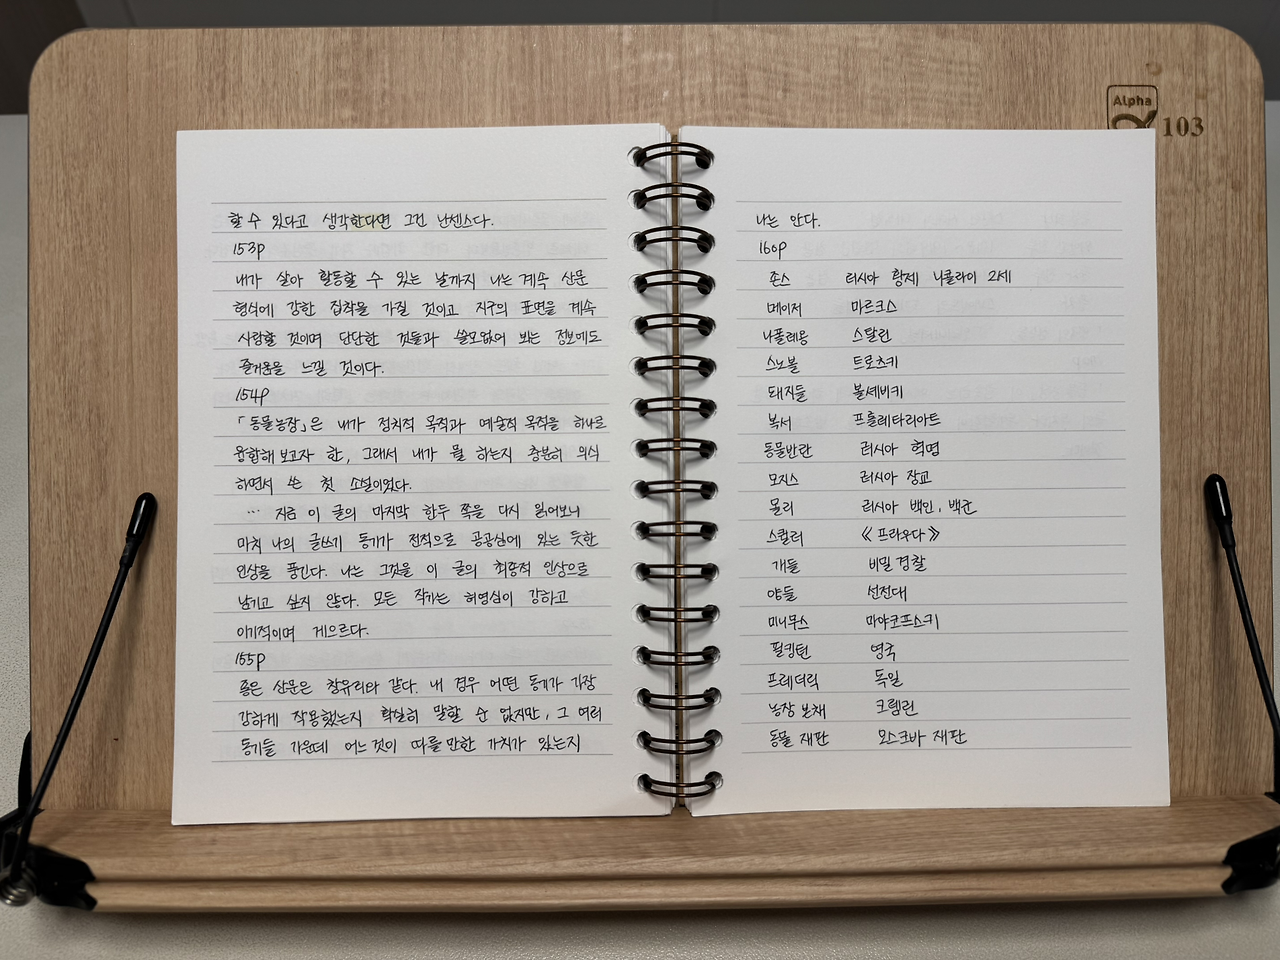 Alpha
103
할 수 있다고 생각한다면 그건 난센스다.
153p
내가 살아 활동할 수 있는 날까지 나는 계속 산문
형식에 강한 집착을 가질 것이고 지구의 표면을 계속
사랑할 것이며 단단한 것들과 쓸모없어 뵈는 정보에도
즐거움을 느낄 것이다.
154p
「동물농장」은 내가 정치적 목적과 예술적 목적을 하나로
융합해 보고자 한, 그래서 내가 뭘 하는지 충분히 의식
하면서 쓴 첫 소설이었다.
… 지금 이 글의 마지막 한두 쪽을 다시 읽어보니
마치 나의 글쓰기 동기가 전적으로 공공심에 있는 듯한
인상을 풍긴다. 나는 그것을 이 글의 최종적 인상으로
남기고 싶지 않다. 모든 작가는 허영심이 강하고
이기적이며 게으르다.
155p
좋은 산문은 창유리와 같다. 내 경우 어떤 동기가 가장
강하게 작용했는지 확실히 말할 순 없지만, 그 여러
동기들 가운데 어느 것이 따를 만한 가치가 있는지
나는 안다.
160p
존스 러시아 황제 니콜라이 2세
메이저 마르크스
나폴레옹 스탈린
스노볼 트로츠키
돼지들 볼셰비키
복서 프롤레타리아트
동물반란 러시아 혁명
모지스 러시아 정교
몰리 러시아 백인, 백군
스퀼러 《프라우다》
개들 비밀경찰
양들 선전대
미니무스 마야코프스키
필킹턴 영국
프레더릭 독일
농장 본채 크렘린
동물 재판 모스크바 재판